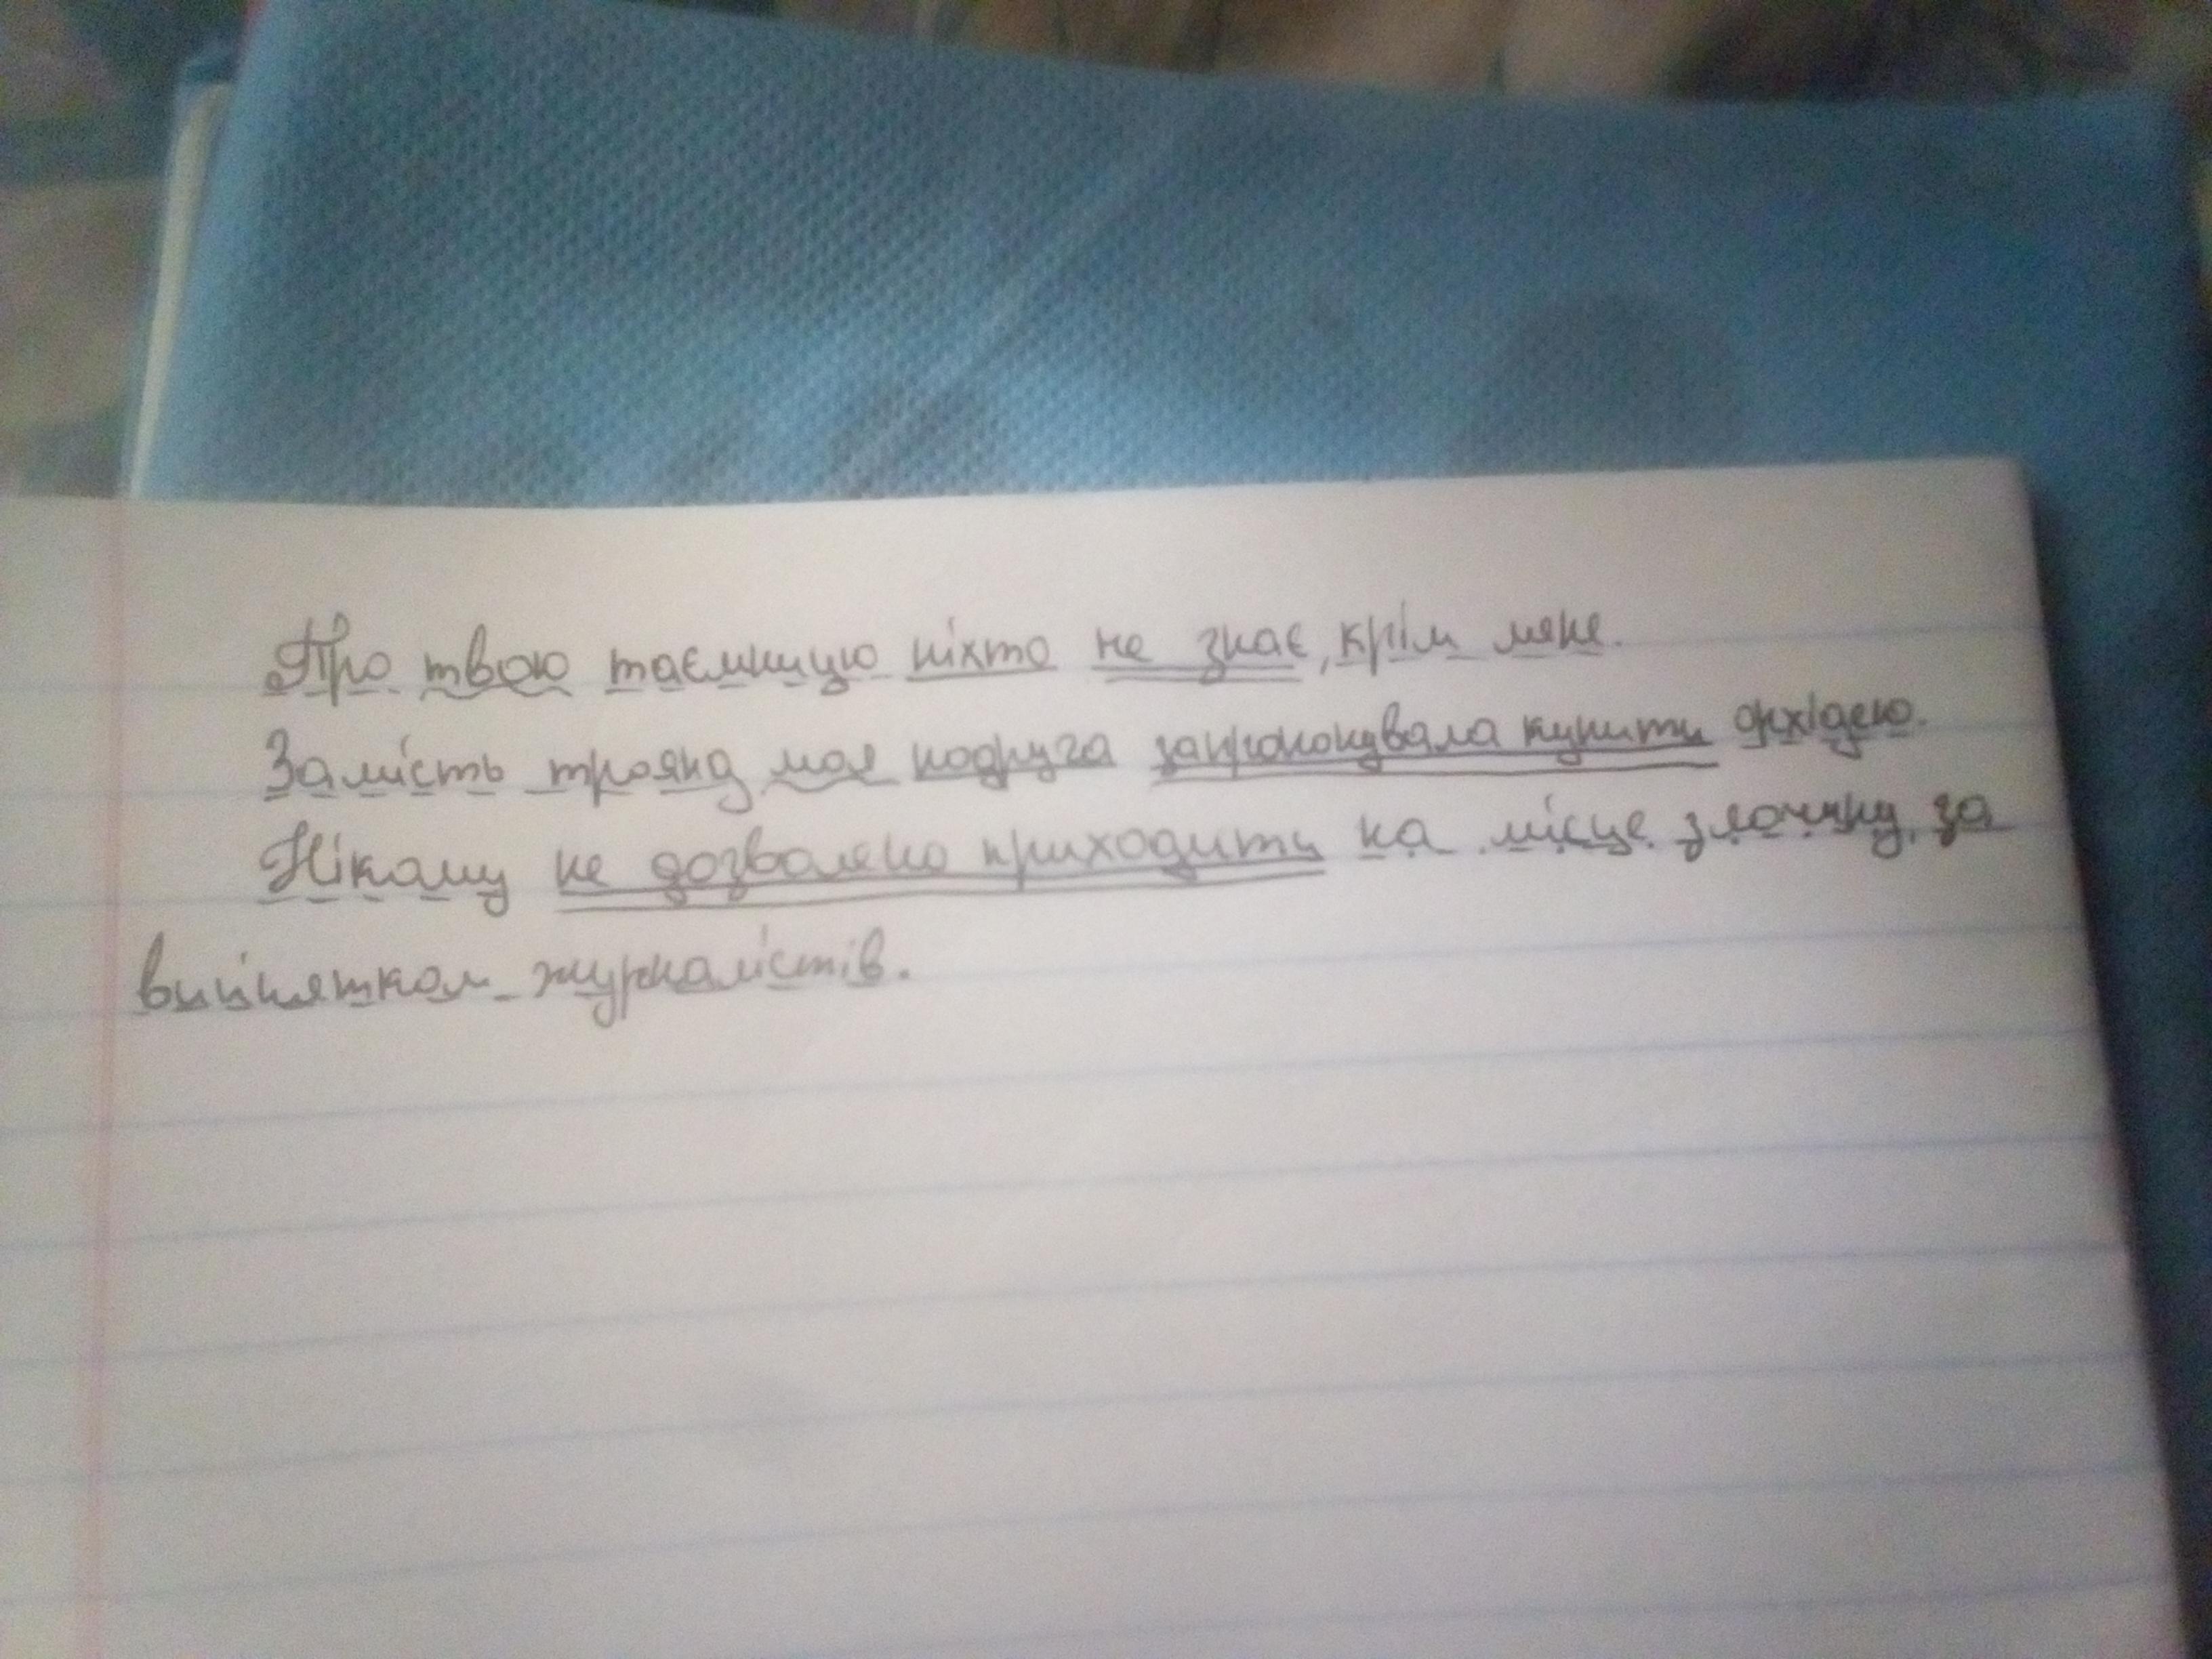 Про твою таємницю ніхто не знає, крім мене.
Замість троянд моя подруга запропонувала купити орхідею.
Нікому не дозволено приходити на місце злочину, за
вийнятком журналістів.